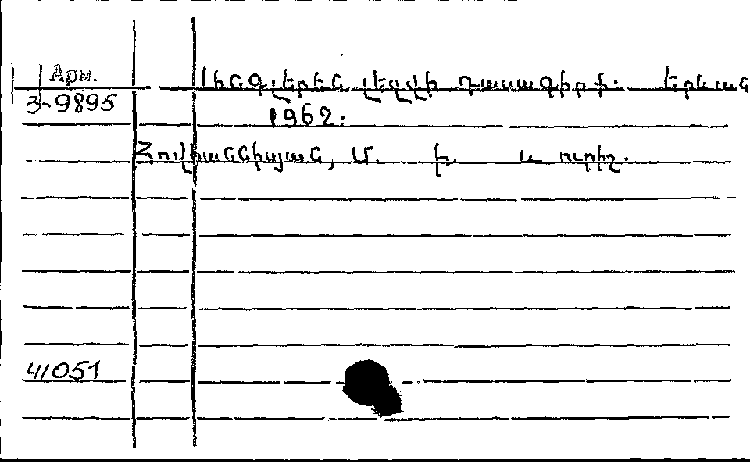 Арм.
Անգլերեն լեզվի դասագիրք. Երևան
3-9895
1962.
Հովհաննիսյան, Մ. Խ. և ուրիշ.
41051